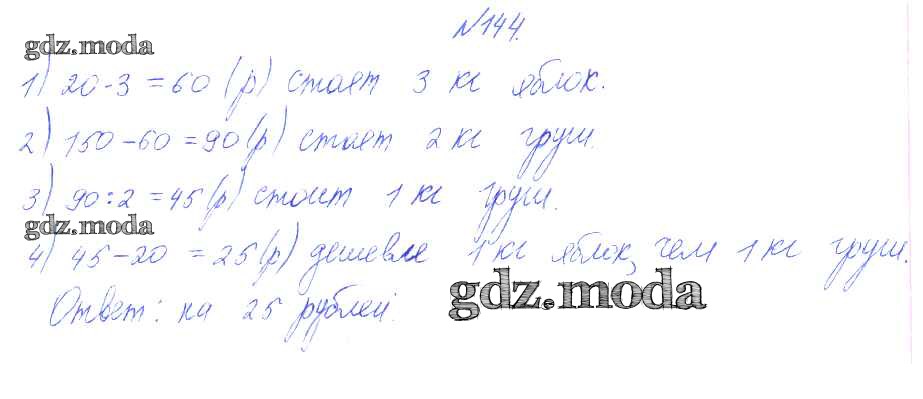 №144.
gdz.moda
1) 20·3=60 (р) стоят 3 кг яблок.
2) 150-60=90(р) стоят 2 кг груш.
3) 90:2=45(р) стоит 1 кг груш.
gdz.moda
4) 45-20=25(р) дешевле 1 кг яблок, чем 1 кг груш.
Ответ: на 25 рублей.
gdz.moda